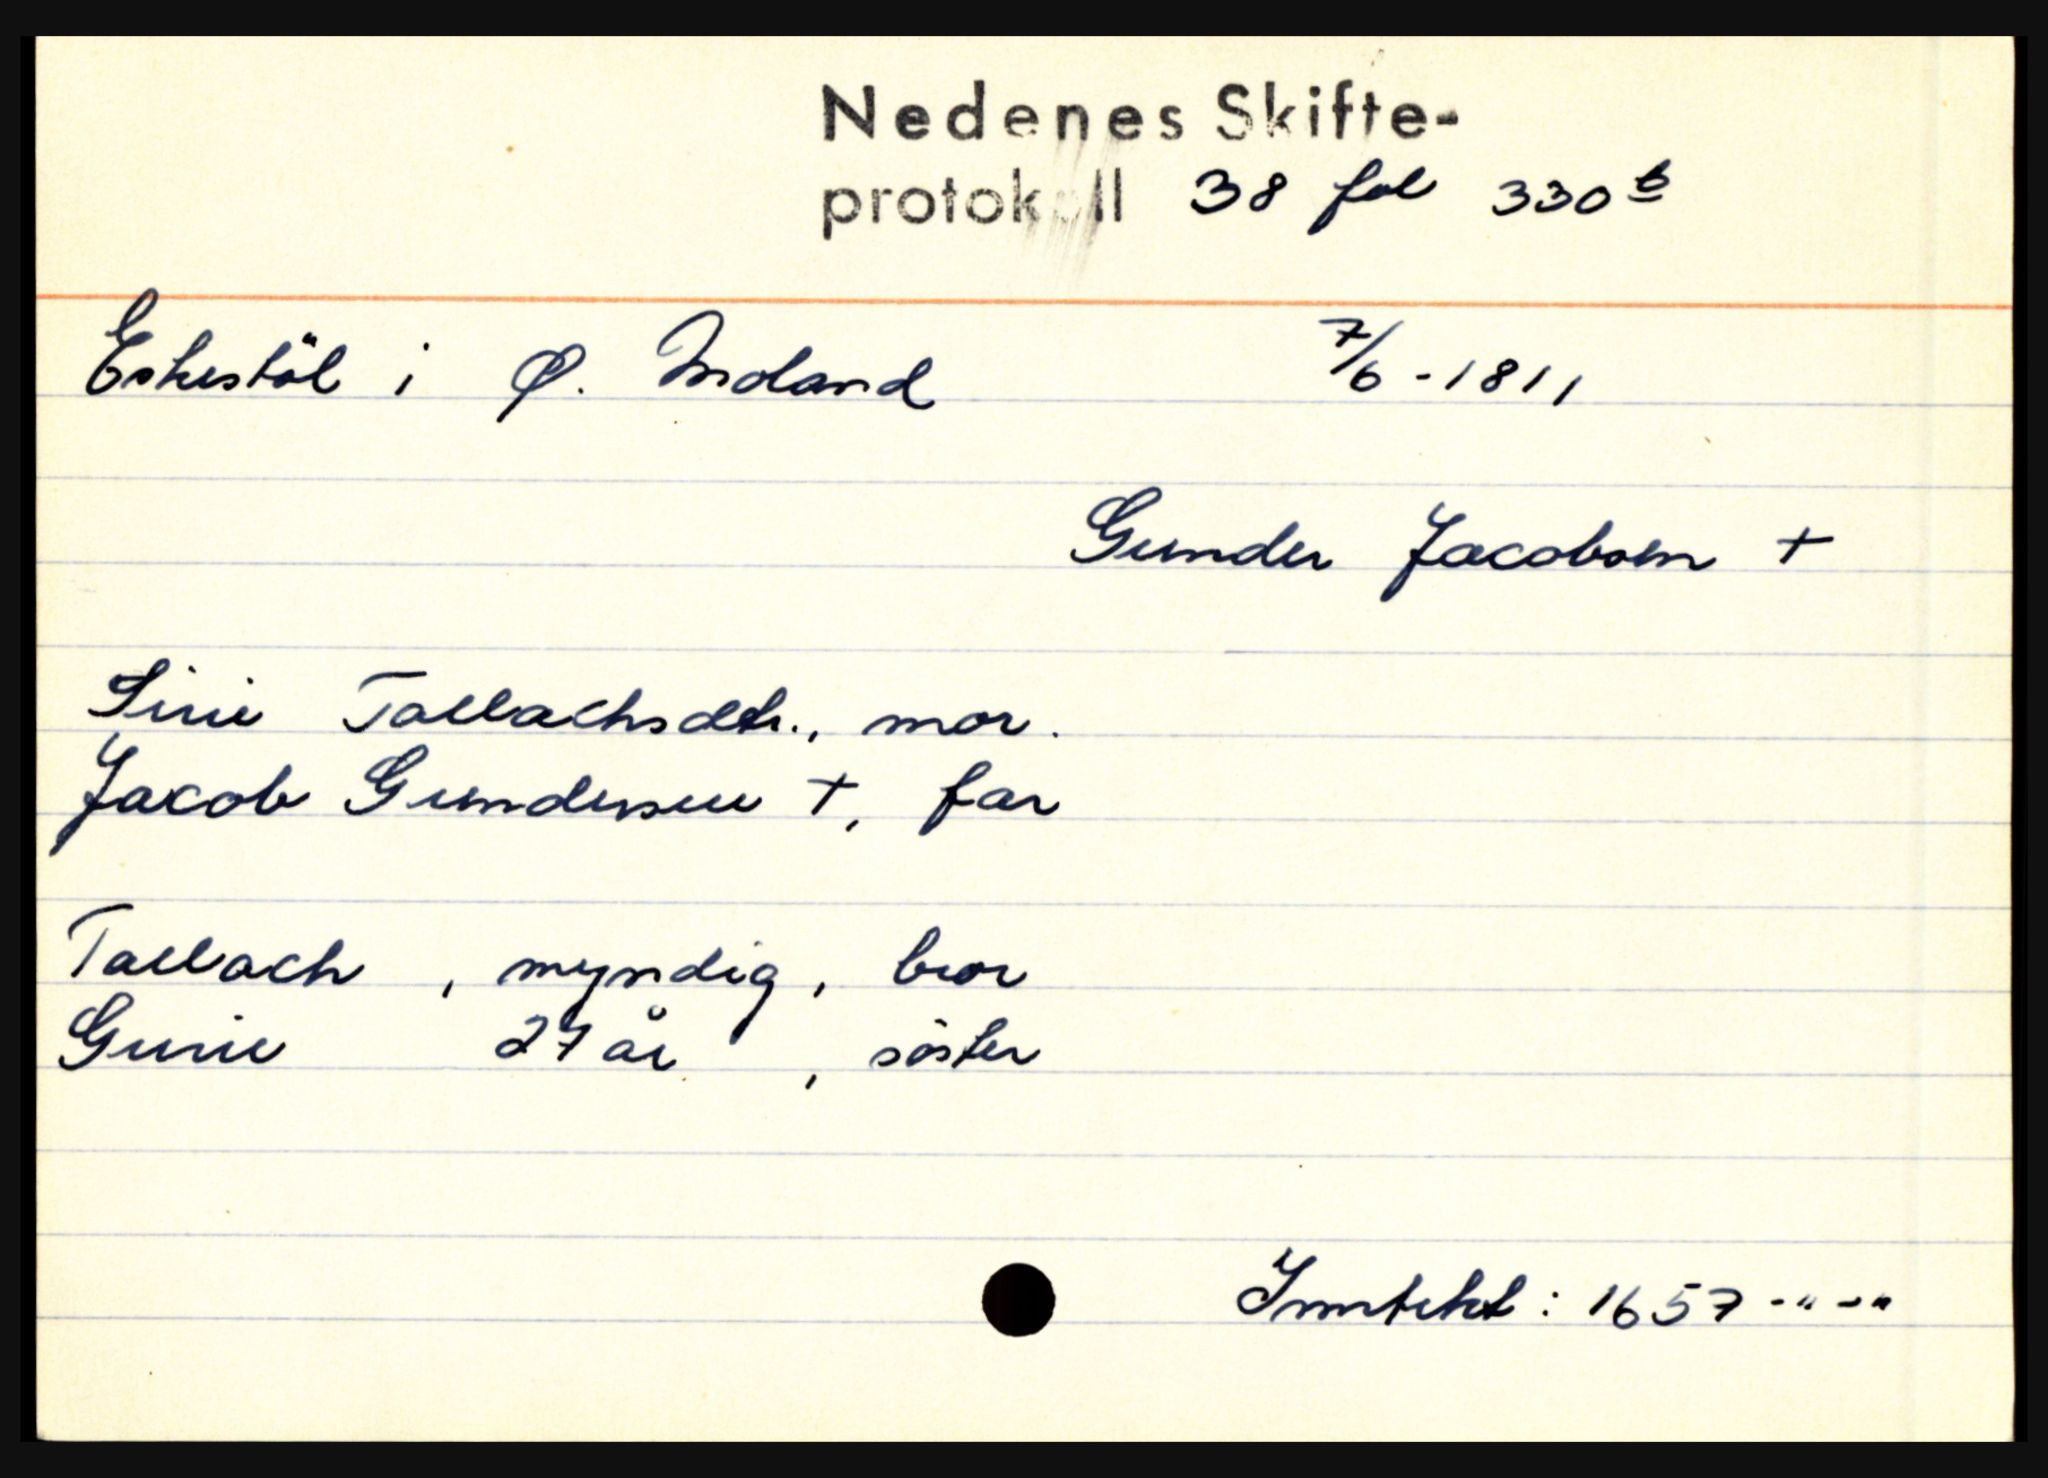 Nedenes Skifte-
protokoll 38 fol 330 b
Eskestöl i Ø. Moland 7/6 - 1811
Gunder Jacobsen +
Sirie Tallachsdtr., mor.
Jacob Gundersen +, far
Tallach , myndig, bror
Gurie 27 år , söster
Inntekt: 1657 -"-"